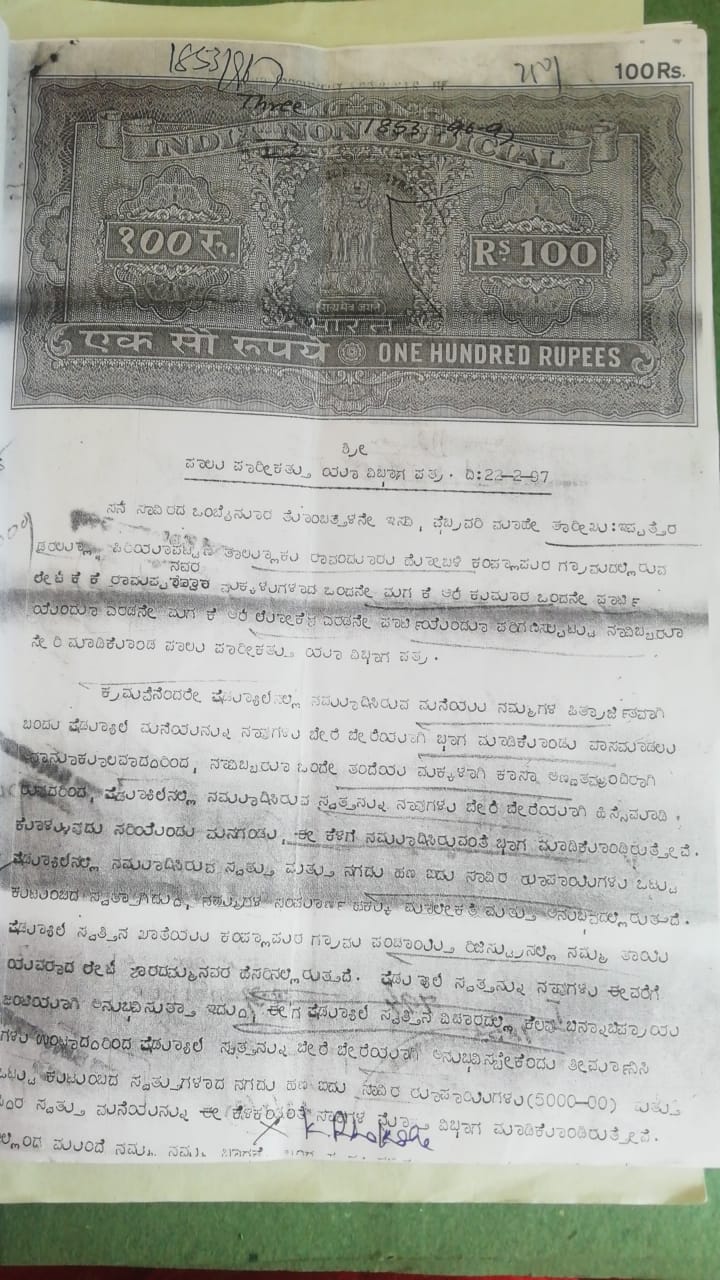 1853
100Rs.
Three
1853 96-97
INDIA NON JUDICIAL
१00 रु.
RS 100
सत्यमेव जयते
भारत
एक सौ रुपये ONE HUNDRED RUPEES
ಶ್ರೀ
ಪಾಲು ಪಾರೀಕತ್ತು ಯಾ ವಿಭಾಗ ಪತ್ರ. ದಿ:22-2-97
ಸನೆ ಸಾವಿರದ ಒಂಬೈನೂರ ತೊಂಬತ್ತೇಳನೇ ಇಸವಿ, ಫೆಬ್ರವರಿ ಮಾಹೇ ತಾರೀಖು:ಇಪ್ಪತ್ತೆರ
ಪಿರಿಯಾಪಟ್ಟಣ ತಾಲ್ಲೂಕು ರಾವಂದೂರು ಹೋಬಳಿ ಕಂಪ್ಲಾಪುರ ಗ್ರಾಮದಲ್ಲಿರುವ
ನವರ
ಲೇಟ್ ಕೆ ಕೆ ರಾಮಪ್ಪ ಮಕ್ಕಳುಗಳಾದ ಒಂದನೇ ಮಗ ಕೆ ಆರ್ ಕುಮಾರ ಒಂದನೇ ಪಾರ್ಟಿ
ಯೆಂದೂ ಎರಡನೇ ಮಗ ಕೆ ಆರ್ ಲೋಕೇಶ ಎರಡನೇ ಪಾರ್ಟಿಯೆಂದೂ ಪರಿಗಣಿಸಲ್ಪಟ್ಟು ನಾವಿಬ್ಬರೂ
ಸೇರಿ ಮಾಡಿಕೊಂಡ ಪಾಲು ಪಾರೀಕತ್ತು ಯಾ ವಿಭಾಗ ಪತ್ರ.
ಕ್ರಮವೇನೆಂದರೇ ಷೆಡ್ಯೂಲಿನಲ್ಲಿ ನಮೂದಿಸಿರುವ ಮನೆಯು ನಮ್ಮಗಳ ಪಿತ್ರಾರ್ಜಿತವಾಗಿ
ಬಂದು ಷೆಡ್ಯೂಲ್ ಮನೆಯನ್ನು ನಾವುಗಳು ಬೇರೆ ಬೇರೆಯಾಗಿ ಭಾಗ ಮಾಡಿಕೊಂಡು ವಾಸಮಾಡಲು
ಅನಾನುಕೂಲವಾದ್ದರಿಂದ, ನಾವಿಬ್ಬರೂ ಒಂದೇ ತಂದೆಯ ಮಕ್ಕಳಾಗಿ ಖಾಸಾ ಅಣ್ಣತಮ್ಮಂದಿರಾಗಿ
ರುವದರಿಂದ, ಷೆಡ್ಯೂಲಿನಲ್ಲಿ ನಮೂದಿಸಿರುವ ಸ್ವತ್ತನ್ನು ನಾವುಗಳು ಬೇರೆ ಬೇರೆಯಾಗಿ ಹಿಸ್ಸೆಮಾಡಿ
ಕೊಳ್ಳುವುದು ಸರಿಯೆಂದು ಮನಗಂಡು, ಈ ಕೆಳಗೆ ನಮೂದಿಸಿರುವಂತೆ ಭಾಗ ಮಾಡಿಕೊಂಡಿರುತ್ತೇವೆ.
ಷೆಡ್ಯೂಲಿನಲ್ಲಿ ನಮೂದಿಸಿರುವ ಸ್ವತ್ತು ಮತ್ತು ನಗದು ಹಣ ಐದು ಸಾವಿರ ರೂಪಾಯಿಗಳು ಒಟ್ಟು
ಕುಟುಂಬದ ಸ್ವತ್ತಾಗಿದ್ದು, ನಮ್ಮಗಳ ಸಂಪೂರ್ಣ ಹಕ್ಕು ಮಾಲೀಕತ್ವ ಮತ್ತು ಅನುಭವದಲ್ಲಿರುತ್ತದೆ.
ಷೆಡ್ಯೂಲ್ ಸ್ವತ್ತಿನ ಖಾತೆಯು ಕಂಪ್ಲಾಪುರ ಗ್ರಾಮ ಪಂಚಾಯ್ತಿ ರಿಜಿಸ್ಟ್ರಿನಲ್ಲಿ ನಮ್ಮ ತಾಯಿ
ಯವರಾದ ಲೇಟ್ ಶಾರದಮ್ಮನವರ ಹೆಸರಿನಲ್ಲಿರುತ್ತದೆ. ಷೆಡ್ಯೂಲ್ ಸ್ವತ್ತನ್ನು ನಾವುಗಳು ಈವರೆಗೆ
ಜಂಟಿಯಾಗಿ ಅನುಭವಿಸುತ್ತಾ ಇದ್ದು, ಈಗ ಷೆಡ್ಯೂಲ್ ಸ್ವತ್ತಿನ ವಿಚಾರದಲ್ಲಿ ಕೆಲವು ಭಿನ್ನಾಭಿಪ್ರಾಯ
ಗಳು ಉಂಟಾದ್ದರಿಂದ ಷೆಡ್ಯೂಲ್ ಸ್ವತ್ತನ್ನು ಬೇರೆ ಬೇರೆಯಾಗಿ ಅನುಭವಿಸಬೇಕೆಂದು ತೀರ್ಮಾನಿಸಿ
ಒಟ್ಟು ಕುಟುಂಬದ ಸ್ವತ್ತುಗಳಾದ ನಗದು ಹಣ ಐದು ಸಾವಿರ ರೂಪಾಯಿಗಳು(5000-00) ಮತ್ತು
ಸ್ಥಿರ ಸ್ವತ್ತು ಮನೆಯನ್ನು ಈ ಕೆಳಕಂಡಂತೆ ವಿಭಾಗ ಮಾಡಿಕೊಂಡಿರುತ್ತೇವೆ.
ಮುಂದೆ ನಮ್ಮ ನಮ್ಮ